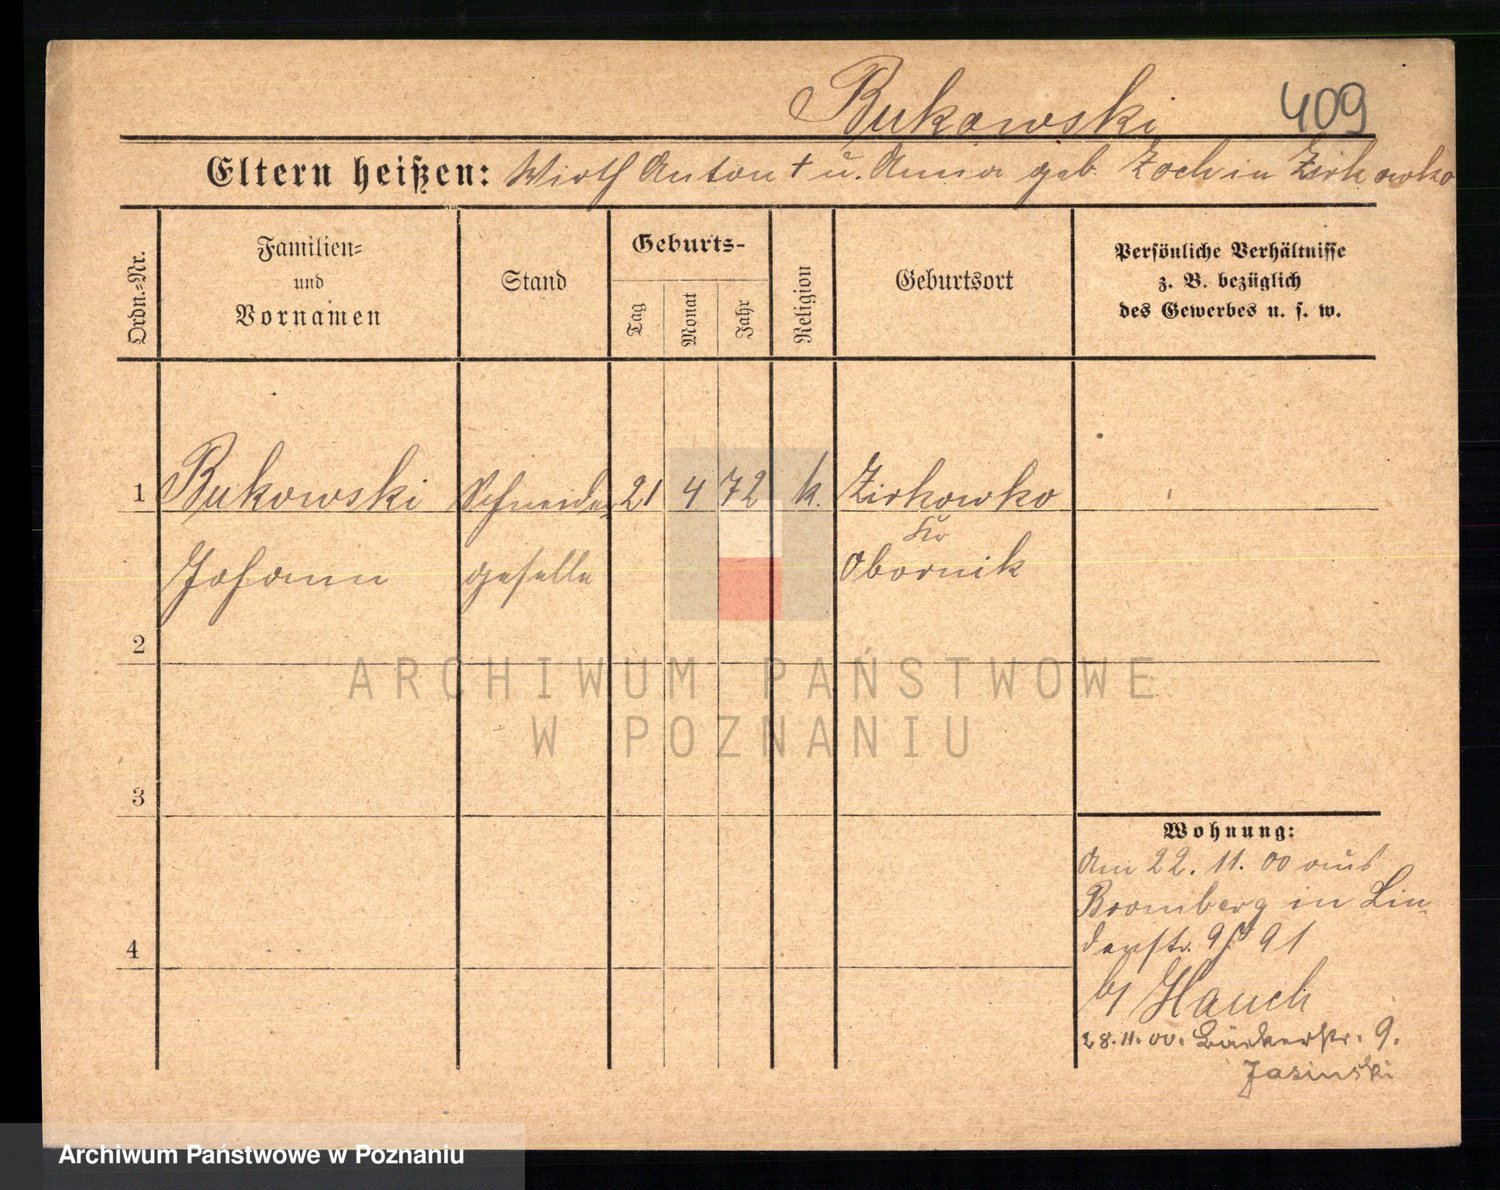 Bukowski 409
Eltern heißen: Wirth Anton † u. Anna geb. Zoch in Zirkowko
Ordn.-Nr.
Familien-
und
Vornamen
Stand
Geburts-
Tag
Monat
Jahr
Religion
Geburtsort
Persönliche Verhältnisse
z. B. bezüglich
des Gewerbes u. s. w.
1 Bukowski Schneider 21 4 72 k. Zirkowko
Kr
Johann geselle Obornik
2
ARCHIWUM PAŃSTWOWE
W POZNANIU
3
Wohnung:
Am 22. 11. 00 aus
Bromberg in Lin-
denstr. 9
4
b/ Hauch
28. 11. 00. Bäckerstr. 9.
Jasinski
Archiwum Państwowe w Poznaniu